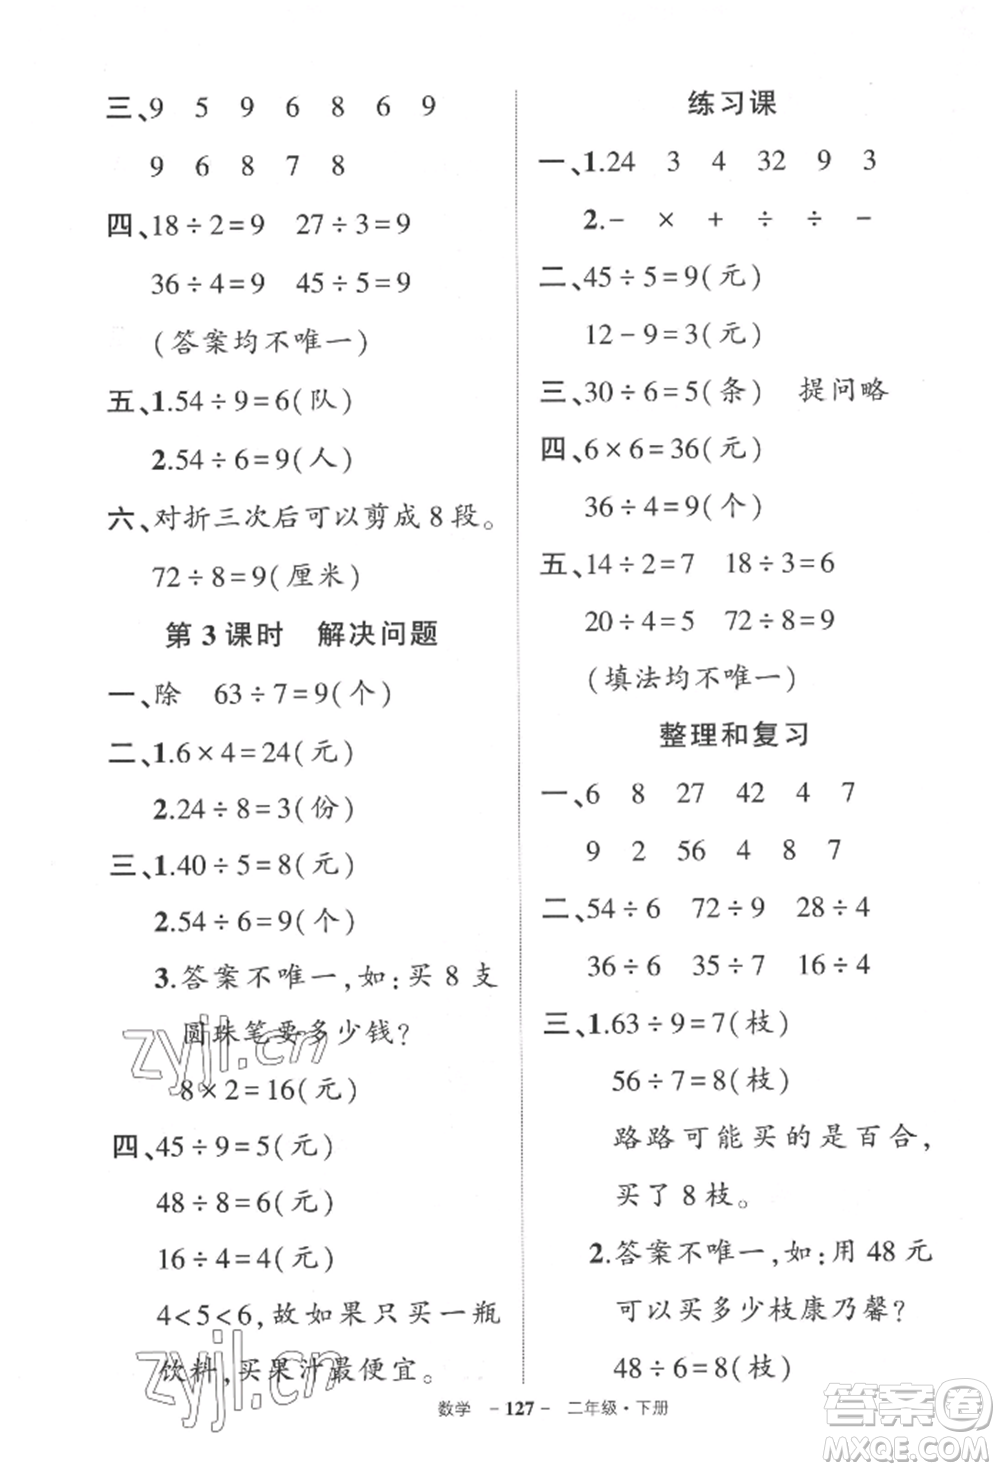 三、9 5 9 6 8 6 9
9 6 8 7 8
四、18÷2=9 27÷3=9
36÷4=9 45÷5=9
(答案均不唯一)
五、1.54÷9=6(队)
2.54÷6=9(人)
六、对折三次后可以剪成8段。
72÷8=9(厘米)
第3课时 解决问题
一、除 63÷7=9(个)
二、1.6×4=24(元)
2.24÷8=3(份)
三、1.40÷5=8(元)
2.54÷6=9(个)
3.答案不唯一,如:买8支
圆珠笔要多少钱?
8×2=16(元)
四、45÷9=5(元)
48÷8=6(元)
16÷4=4(元)
4<5<6,故如果只买一瓶
饮料,买果汁最便宜。
练习课
一、1.24 3 4 32 9 3
2.- × + ÷ ÷ -
二、45÷5=9(元)
12-9=3(元)
三、30÷6=5(条) 提问略
四、6×6=36(元)
36÷4=9(个)
五、14÷2=7 18÷3=6
20÷4=5 72÷8=9
(填法均不唯一)
整理和复习
一、6 8 27 42 4 7
9 2 56 4 8 7
二、54÷6 72÷9 28÷4
36÷6 35÷7 16÷4
三、1.63÷9=7(枝)
56÷7=8(枝)
路路可能买的是百合,
买了8枝。
2.答案不唯一,如:用48元
可以买多少枝康乃馨?
48÷6=8(枝)
数学 -127- 二年级·下册
zyjl.cn
zyjl.cn
答案圈
MXQE.COM